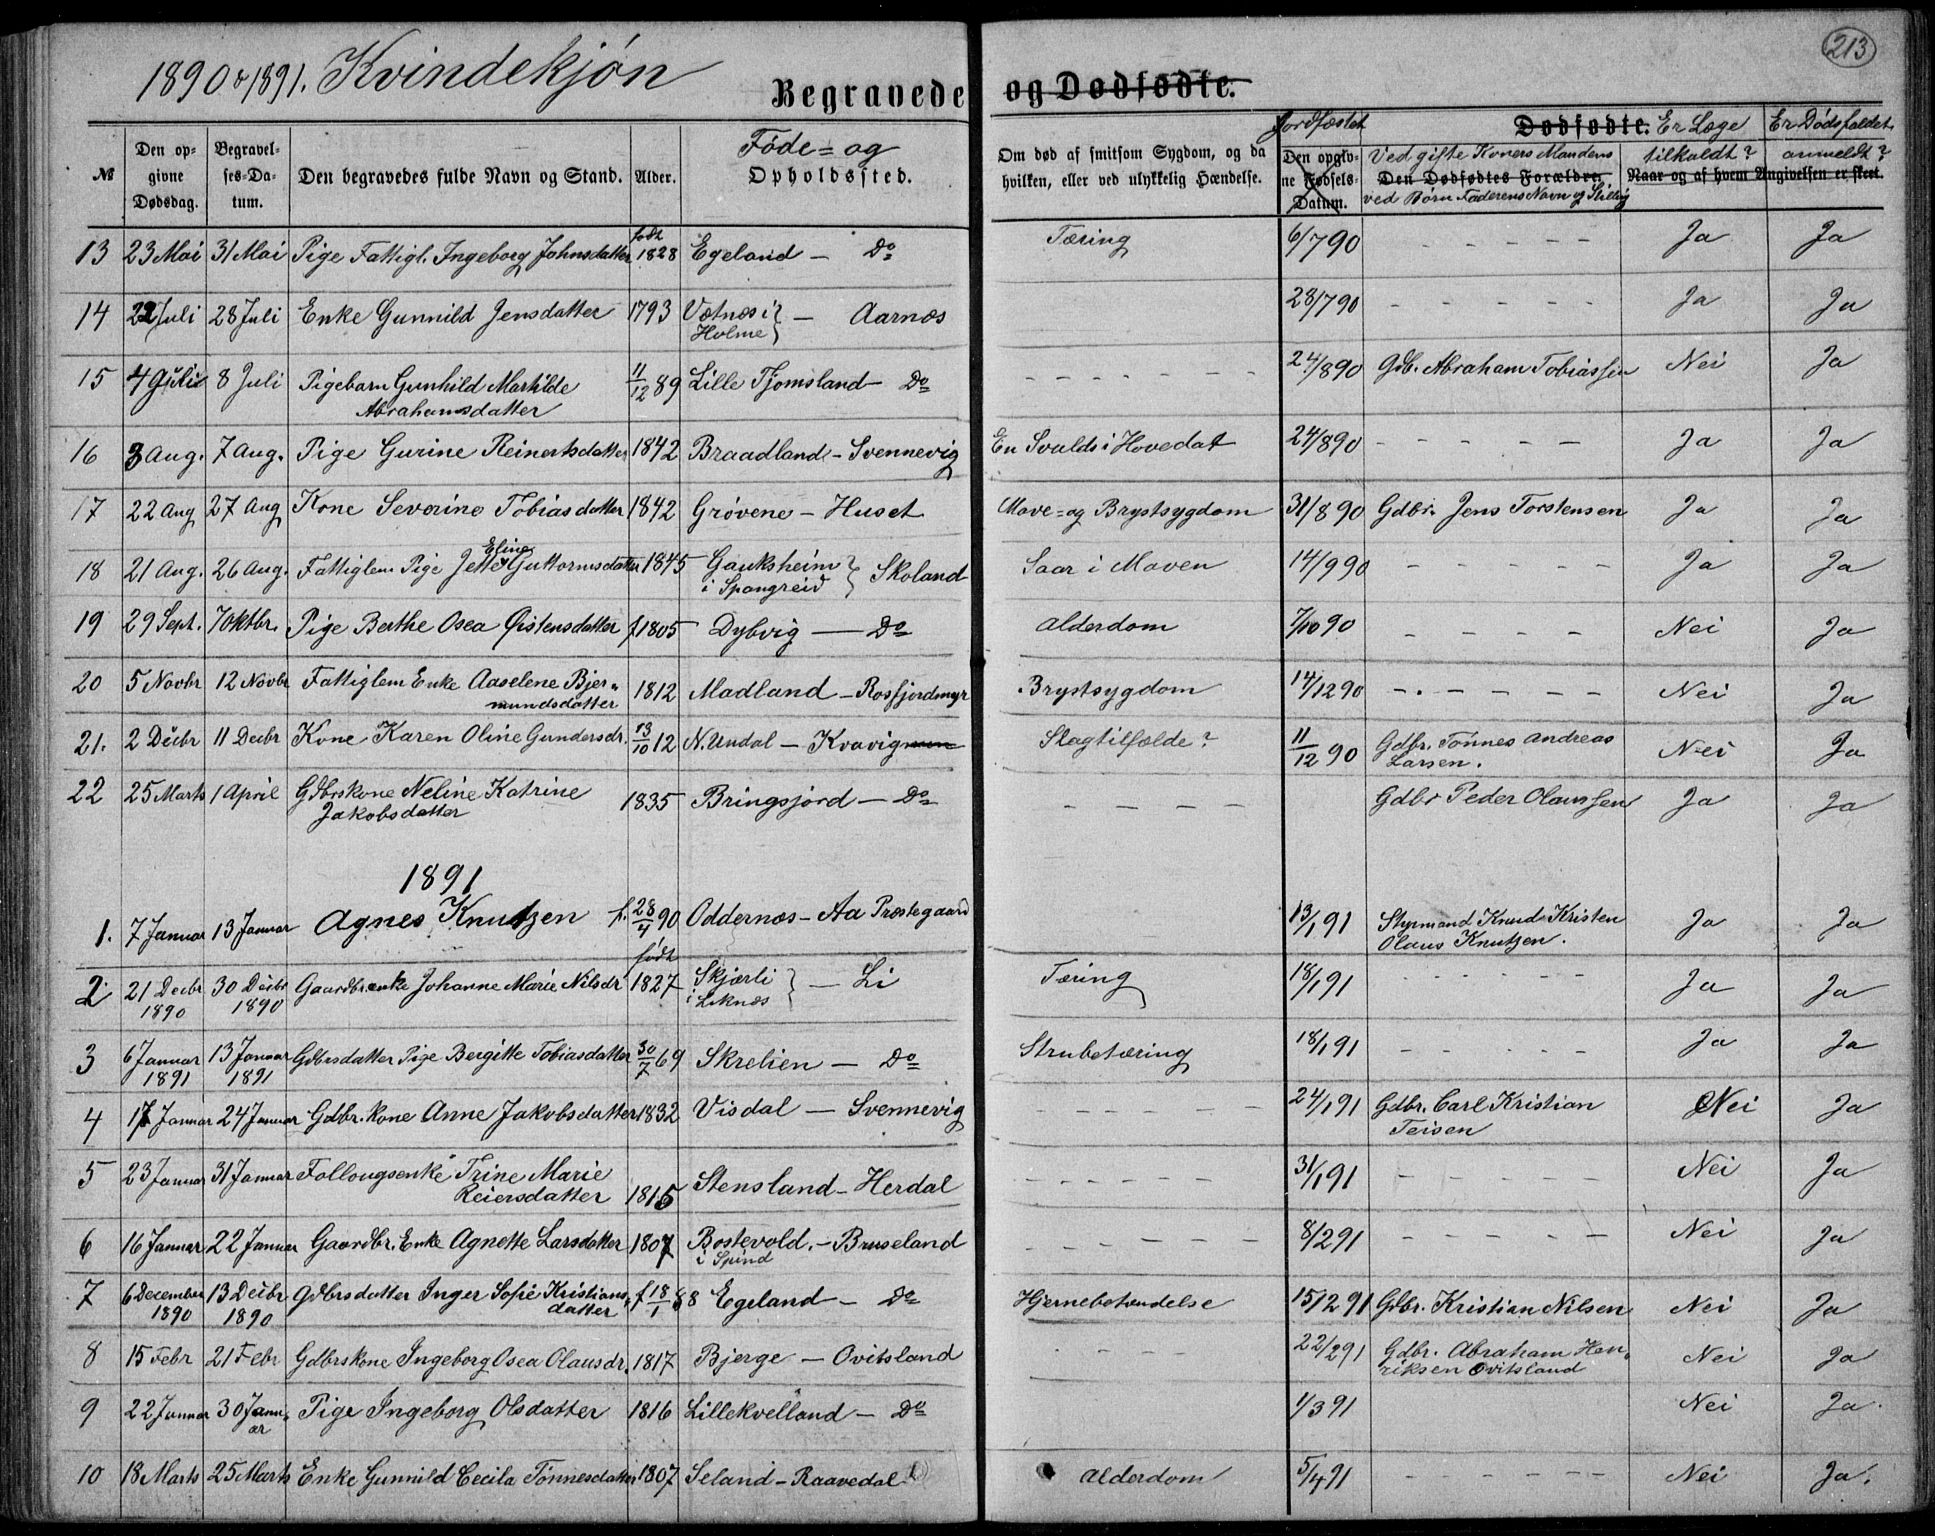 213
1890 & 1891. Kvindekjøn
Begravede og Dødfødte.
№ | Den opgivne Dødsdag. | Begravelses-Datum. | Den begravedes fulde Navn og Stand. | Alder. | Føde- og Opholdssted. | Om død af smitsom Sygdom, og da hvilken, eller ved ulykkelig Hændelse. | Jordfæstet Den opgivne Fødsels-Datum. | Dødfødte. Ved gifte Koners Mandens Den Dødfødtes Forældre. ved Børn Faderens Navn og Stilling | Er Læge tilkaldt? | Er Dødsfaldet anmeldt? Naar og af hvem Angivelsen er skeet.
13 | 23 Mai | 31 Mai | Pige Fattigl. Ingeborg Johnsdatter | født 1828 | Egeland – Do | Tæring | 6/7 90 | – – – – – | Ja | Ja
14 | 22 Juli | 28 Juli | Enke Gunnild Jensdatter | 1793 | Vætnæs i Holme } – Aarnæs | | 28/7 90 | – – – – – | Ja | Ja
15 | 4 Juli | 8 Juli | Pigebarn Gunhild Mathilde Abrahamsdatter | 11/12 89 | Lille Tjomsland – Do | – – – – – – | 24/8 90 | Gdb. Abraham Tobiassen | Nei | Ja
16 | 3 Aug. | 7 Aug. | Pige Gurine Reinertsdatter | 1842 | Braadland – Svennevig | En Svulds i Hovedat | 24/8 90 | – – – – – | Ja | Ja
17 | 22 Aug | 27 Aug | Kone Severine Tobiasdatter | 1842 | Grøvene – Huset | Mave- og Brystsygdom | 31/8 90 | Gdbr. Jens Torstensen | Ja | Ja
18 | 21 Aug. | 26 Aug. | Fattiglem Pige Jette Eline Guttormsdatter | 1845 | Gauksheim i Spangreid } Skoland | Saar i Maven | 14/9 90 | – – – – – | Ja | Ja
19 | 29 Sept. | 7 Oktbr. | Pige Berthe Osea Øistensdatter | f 1805 | Dybvig – Do | Alderdom | 7/10 90 | – – – – – | Nei | Ja
20 | 5 Novbr | 12 Novbr | Fattiglem Enke Aaselene Bjermundsdatter | 1812 | Madland – Rosfjordmyr | Brystsygdom | 14/12 90 | – – – – – | Nei | Ja
21. | 2 Decbr | 11 Decbr | Kone Karen Oline Gundersdr. | 13/10 12 | N. Undal – Kvavig | Slagtilfælde? | 11/12 90 | Gdbr. Tønnes Andreas Larsen. | Nei | Ja
22 | 25 Marts | 1 April | Gdbrskone Neline Katrine Jakobsdatter | 1835 | Bringsjord – Do | – – – – – | | Gdbr Peder Olaussen | Ja | Ja
1891
1. | 7 Januar | 13 Januar | Agnes Knutzen | f. 28/4 90 | Oddernæs – Aa Præstegaard | | 13/1 91 | Styrmand Knud Kristen Olaus Knutzen. | Ja | Ja
2 | 21 Decbr 1890 | 30 Decbr 1890 | Gaardbr.enke Johanne Marie Nilsdr | født 1827 | Skjærli i Liknæs } – Li | Tæring | 18/1 91 | – – – – – | Ja | Ja
3 | 6 Januar 1891 | 13 Januar 1891 | Gdbrsdatter Pige Bergitte Tobiasdatter | 30/7 69 | Skrelien – Do | Strubetæring | 18/1 91 | – – – – – | Ja | Ja
4 | 17 Januar | 24 Januar | Gdbr. kone Anne Jakobsdatter | 1832 | Visdal – Svennevig | – – – – – | 24/1 91 | Gdbr. Carl Kristian Teisen | Nei | Ja
5 | 23 Januar | 31 Januar | Follougsenke Trine Marie Reiersdatter | 1815 | Stensland – Herdal | – – – – – | 31/1 91 | – – – – – | Nei | Ja
6 | 16 Januar | 22 Januar | Gaardbr. Enke Agnette Larsdatter | 1807 | Bostevold i Spind – Bruseland | – – – – – | 8/2 91 | – – – – – | Nei | Ja
7 | 6 December 1890 | 13 Decbr 1890 | Gdbrsdatter Inger Sofie Kristiansdatter | f 18/1 88 | Egeland – Do | Hjernebetændelse | 15/12 91 | Gdbr. Kristian Nilsen | Nei | Ja
8 | 15 Febr | 21 Febr | Gdbrskone Ingeborg Osea Olausdr. | 1817 | Bjerge – Ovitsland | – – – | 22/2 91 | Gdbr. Abraham Henriksen Ovitsland | Nei | Ja
9 | 22 Januar | 30 Januar | Pige Ingeborg Olsdatter | 1816 | Lillekvelland – Do | | 1/3 91 | | Nei | Ja.
10 | 18 Marts | 25 Marts | Enke Gunnild Cecila Tønnesdatter | 1807 | Seland – Raavedal | Alderdom | 5/4 91 | – – – – – | Nei | Ja.